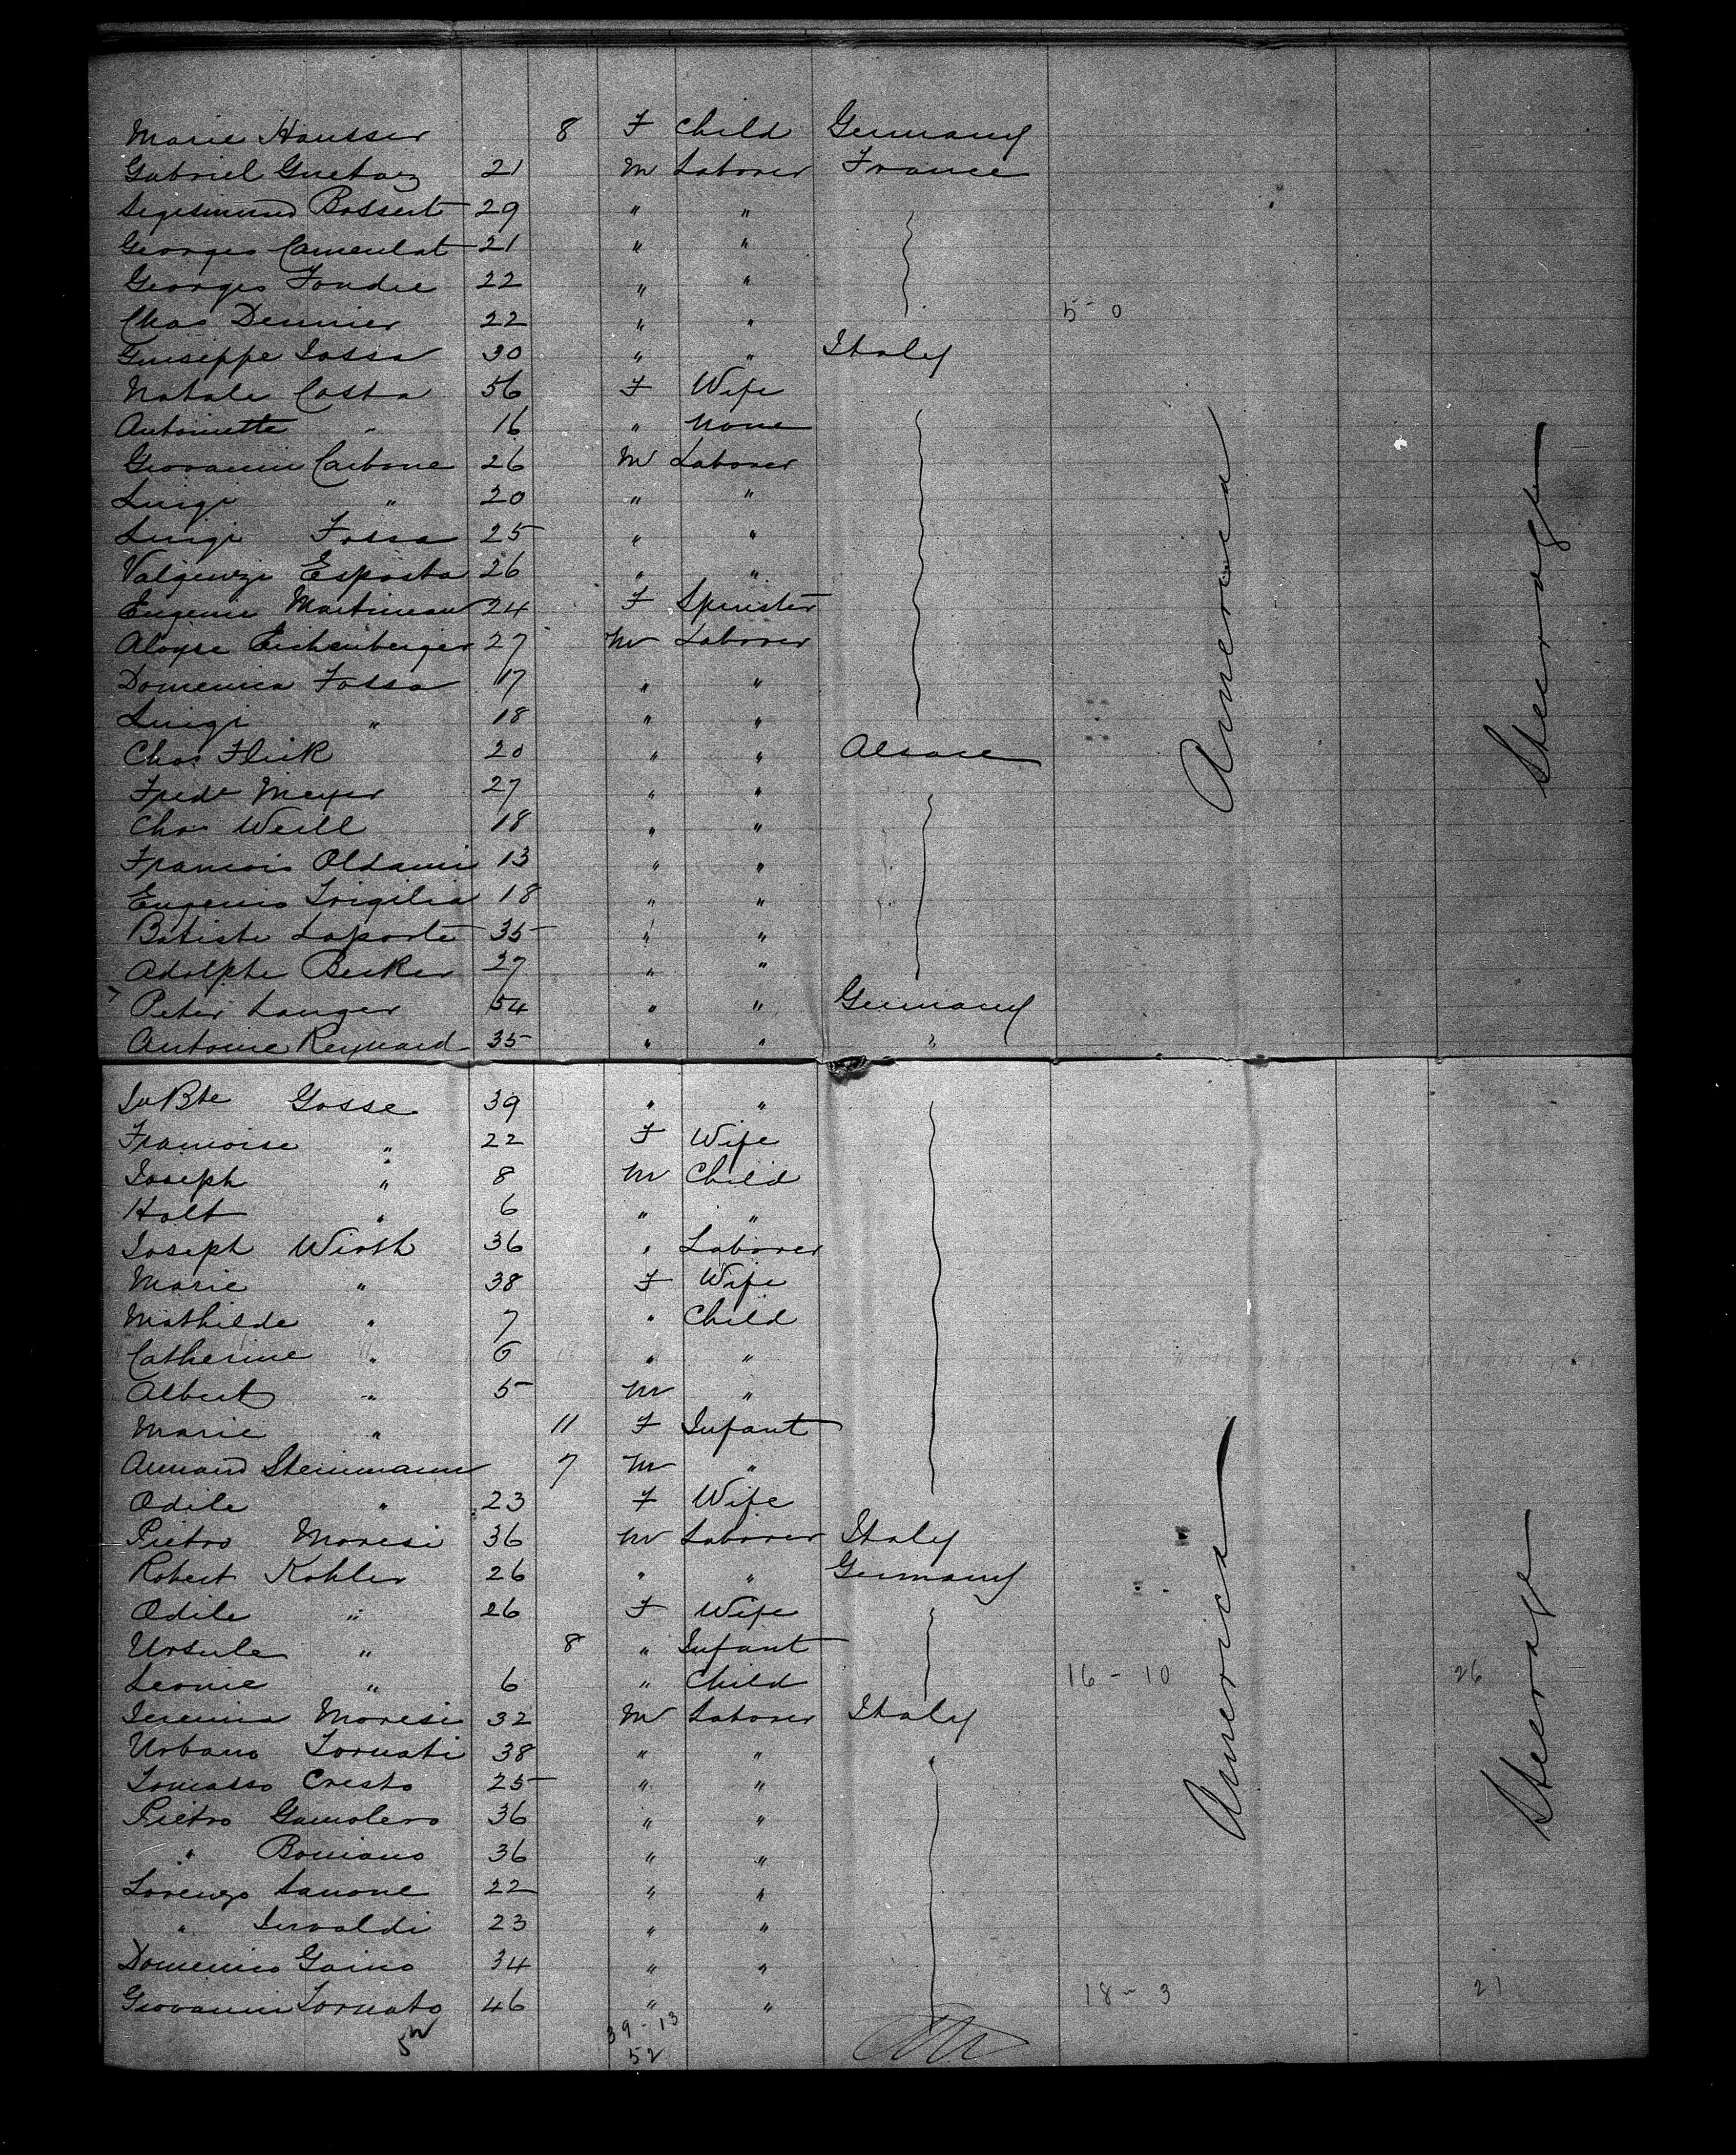 Marie Hausser 8 F Child Germany
Gabriel Guetaz 21 M Laborer France
Sigismund Bossert 29 " "
Georges Camenlat 21 " "
Georges Fondre 22 " "
Chas Demmer 22 " " 5-0
Giuseppe Fossa 30 " " Italy
Natale Costa 56 F Wife
Antoinette " 16 " None
Giovanni Carbone 26 M Laborer
Luigi " 20 " "
Luigi Fossa 25 " "
Esposta 26 " "
Eugenie Martineau 24 F Spinster
Aloyse Eichenberger 27 M Laborer
Domenica Fossa 17 " "
Luigi " 18 " "
Chas Flick 20 " " Alsace
Fredk Meyer 27 " "
Chas Weill 18 " "
Francois Oldami 13 " "
Eugenio Trigilia 18 " "
Batiste Laporte 35 " "
Adolphe Becker 27 " "
Peter Langer 54 " " Germany
Antoine Reynard 35 " " "
America
Steerage
Jn Bte Gosse 39 " "
Francoise " 22 F Wife
Joseph " 8 M Child
Holt " 6 " "
Joseph Wirth 36 " Laborer
Marie " 38 F Wife
Mathilde " 7 " Child
Catherine " 6 " "
Albert " 5 M "
Marie " 11 F Infant
Armand Steinmann 7 M "
Odile " 23 F Wife
Pietro Moresi 36 M Laborer Italy
Robert Kohler 26 " " Germany
Odile " 26 F Wife
Ursule " 8 " Infant
Leonie " 6 " Child 16-10 26
Moresi 32 M Laborer Italy
Urbano Tornati 38 " "
Tomasso Cresto 25 " "
Pietro Gamolero 36 " "
" Bomano 36 " "
Lorenzo Lanone 22 " "
" 23 " "
Domenico Gaino 34 " "
Giovanni Tornato 46 " " 18-3 21
39-13
52
America
Steerage